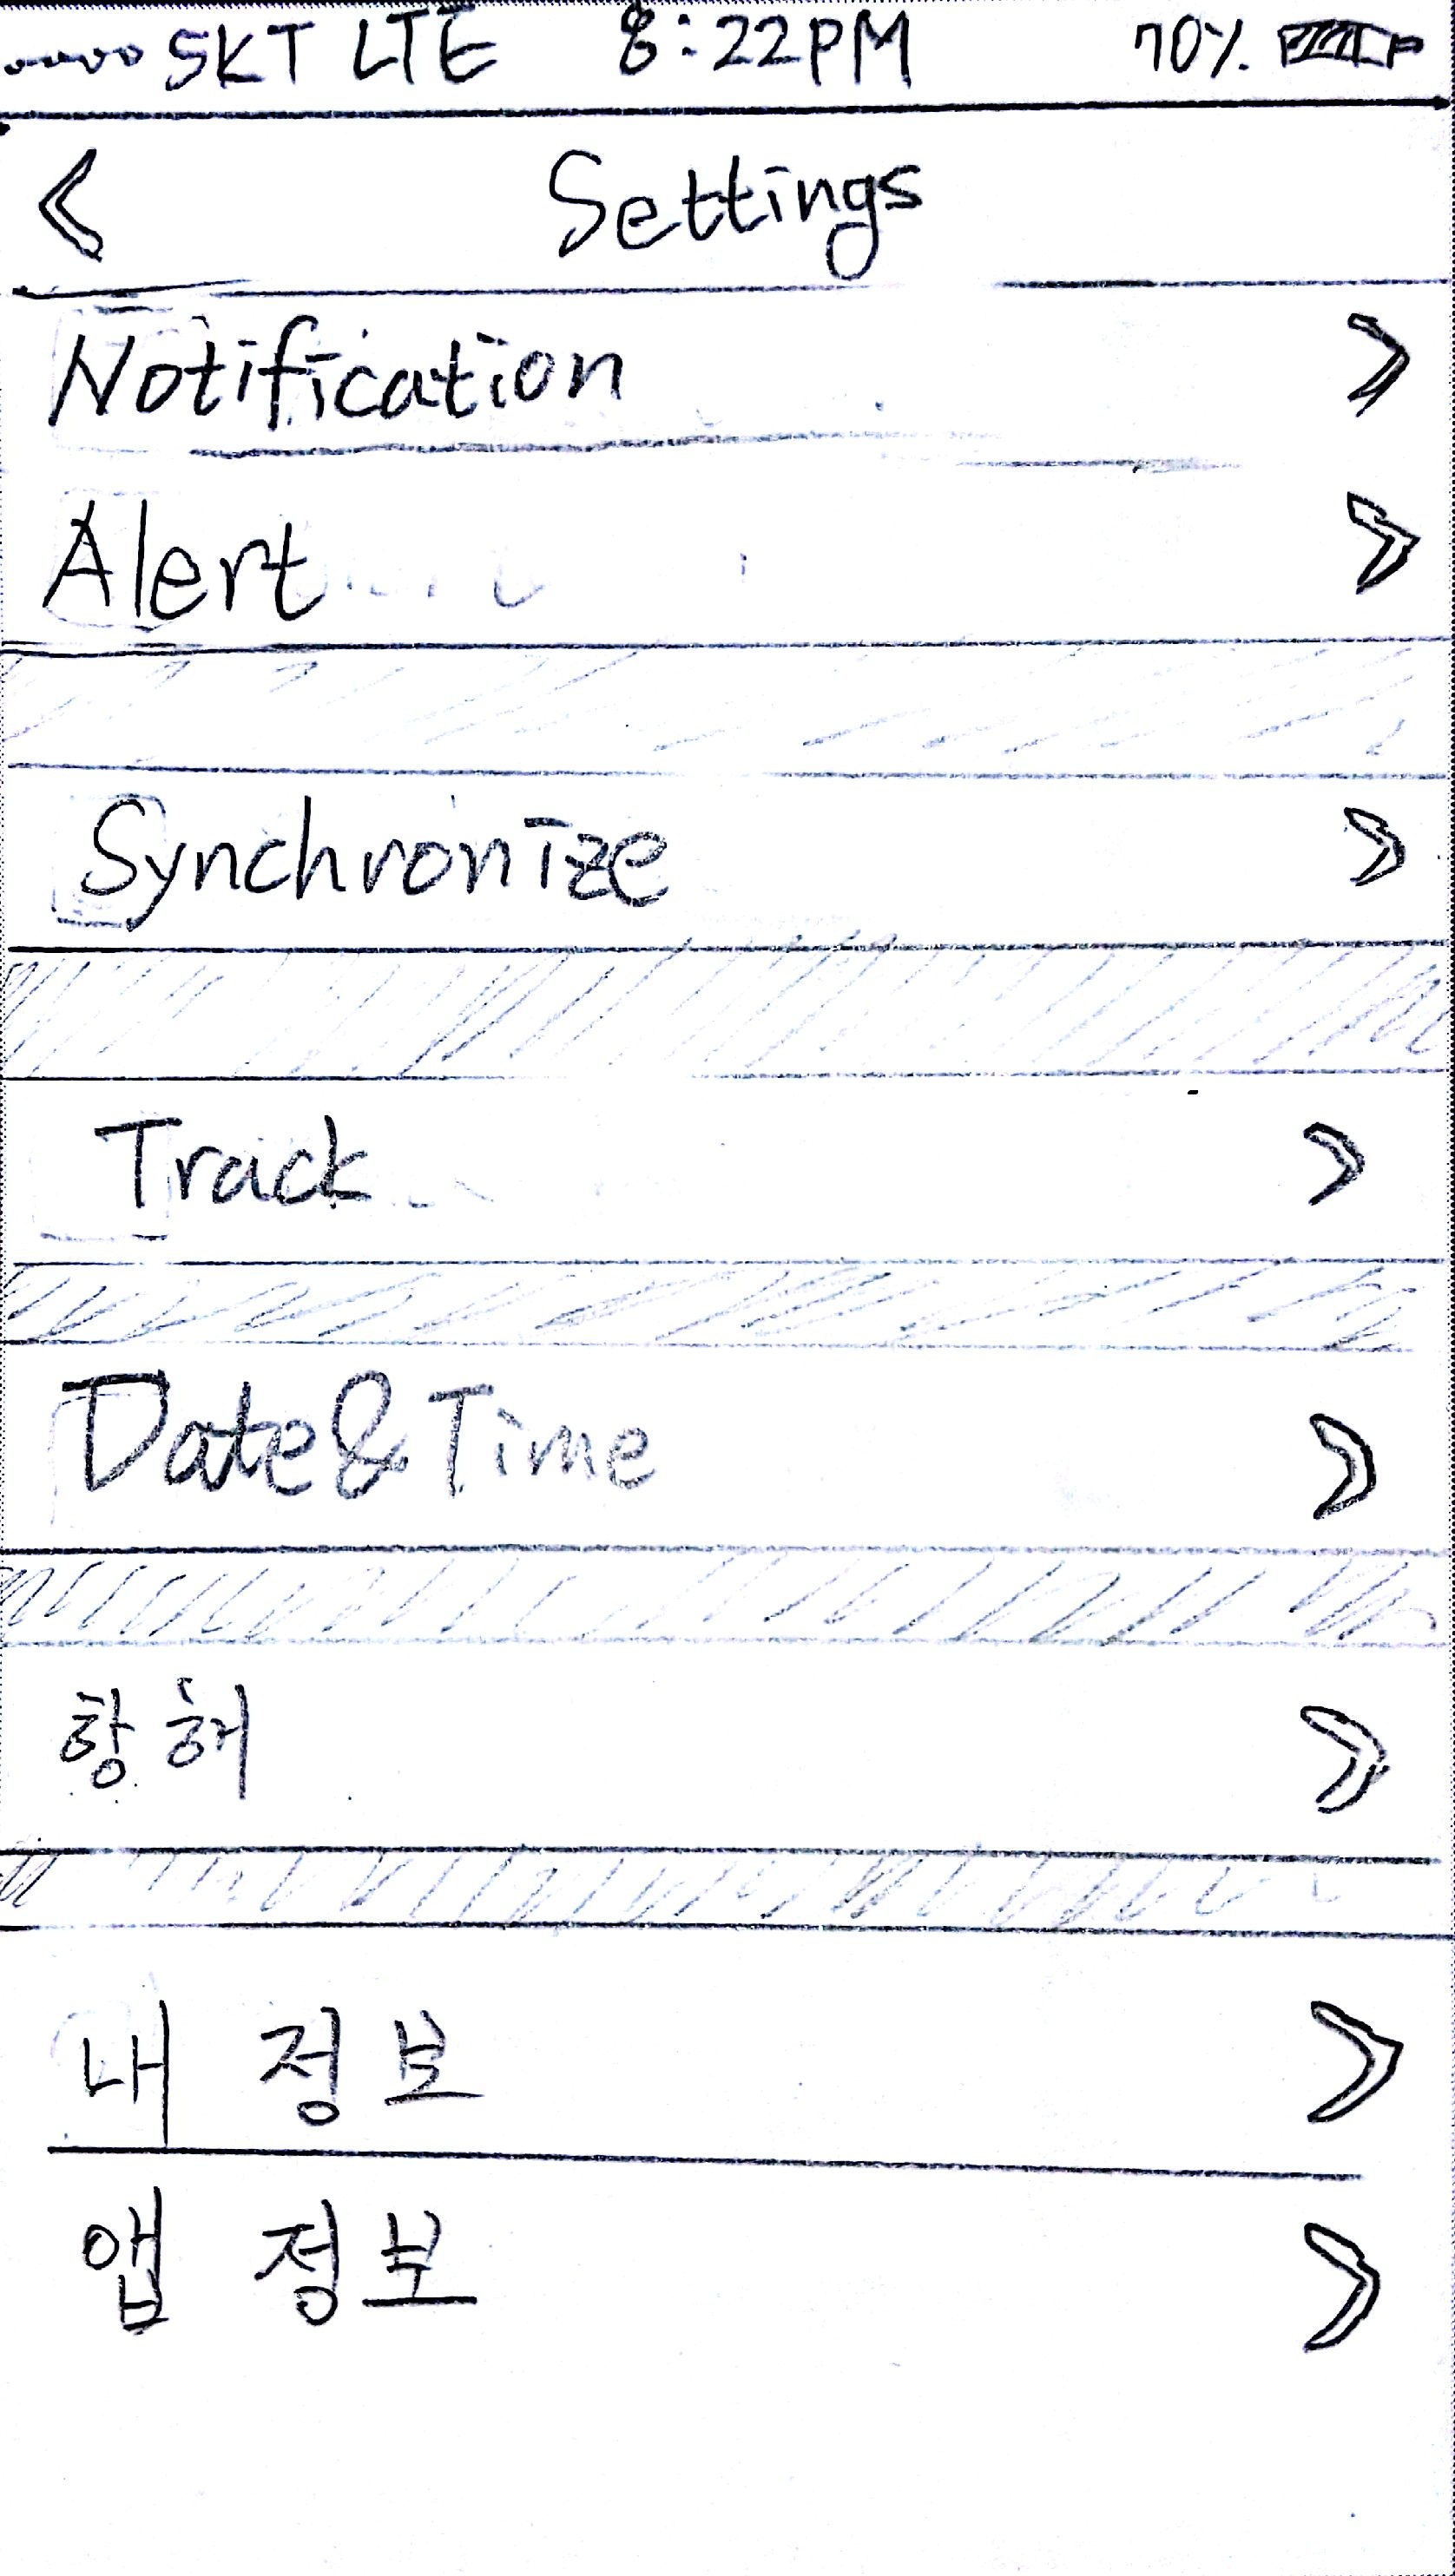 SKT LTE 8:22PM 70%
Settings
Notification
Alert
Synchronize
Track
Date&Time
항해
내 정보
앱 정보